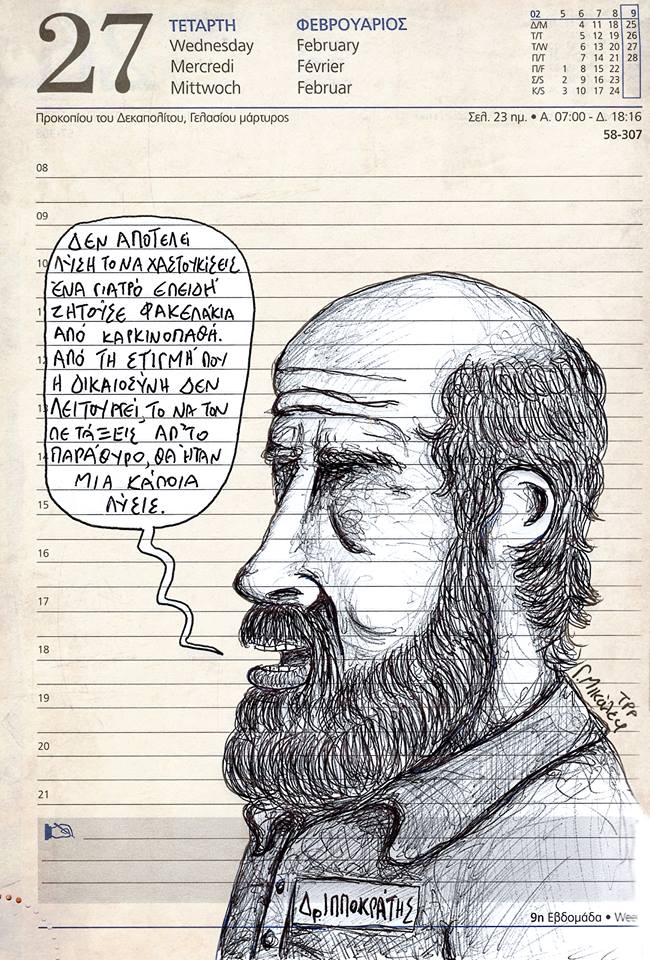 27
ΤΕΤΑΡΤΗ ΦΕΒΡΟΥΑΡΙΟΣ
Wednesday February
Mercredi Février
Mittwoch Februar
02 5 6 7 8 9
Δ/Μ 4 11 18 25
Τ/Τ 5 12 19 26
Τ/W 6 13 20 27
Π/Τ 7 14 21 28
Π/F 1 8 15 22
Σ/S 2 9 16 23
Κ/S 3 10 17 24
Προκοπίου του Δεκαπολίτου, Γελασίου μάρτυρος
Σελ. 23 ημ. • Α. 07:00 - Δ. 18:16
58-307
08
09
ΔΕΝ ΑΠΟΤΕΛΕΙ
ΛΥΣΗ ΤΟ ΝΑ ΧΑΣΤΟΥΚΙΣΕΙΣ
ΕΝΑ ΓΙΑΤΡΟ ΕΠΕΙΔΗ
ΖΗΤΟΥΣΕ ΦΑΚΕΛΑΚΙΑ
ΑΠΟ ΚΑΡΚΙΝΟΠΑΘΗ.
ΑΠΟ ΤΗ ΣΤΙΓΜΗ ΠΟΥ
Η ΔΙΚΑΙΟΣΥΝΗ ΔΕΝ
ΛΕΙΤΟΥΡΓΕΙ, ΤΟ ΝΑ ΤΟΝ
ΠΕΤΑΞΕΙΣ ΑΠ'ΤΟ
ΠΑΡΑΘΥΡΟ, ΘΑ ΉΤΑΝ
ΜΙΑ ΚΑΠΟΙΑ
ΛΥΣΙΣ.
10
12
13
14
15
16
17
18
19
20
21
ΔρΙΠΠΟΚΡΑΤΗΣ
9η Εβδομάδα •